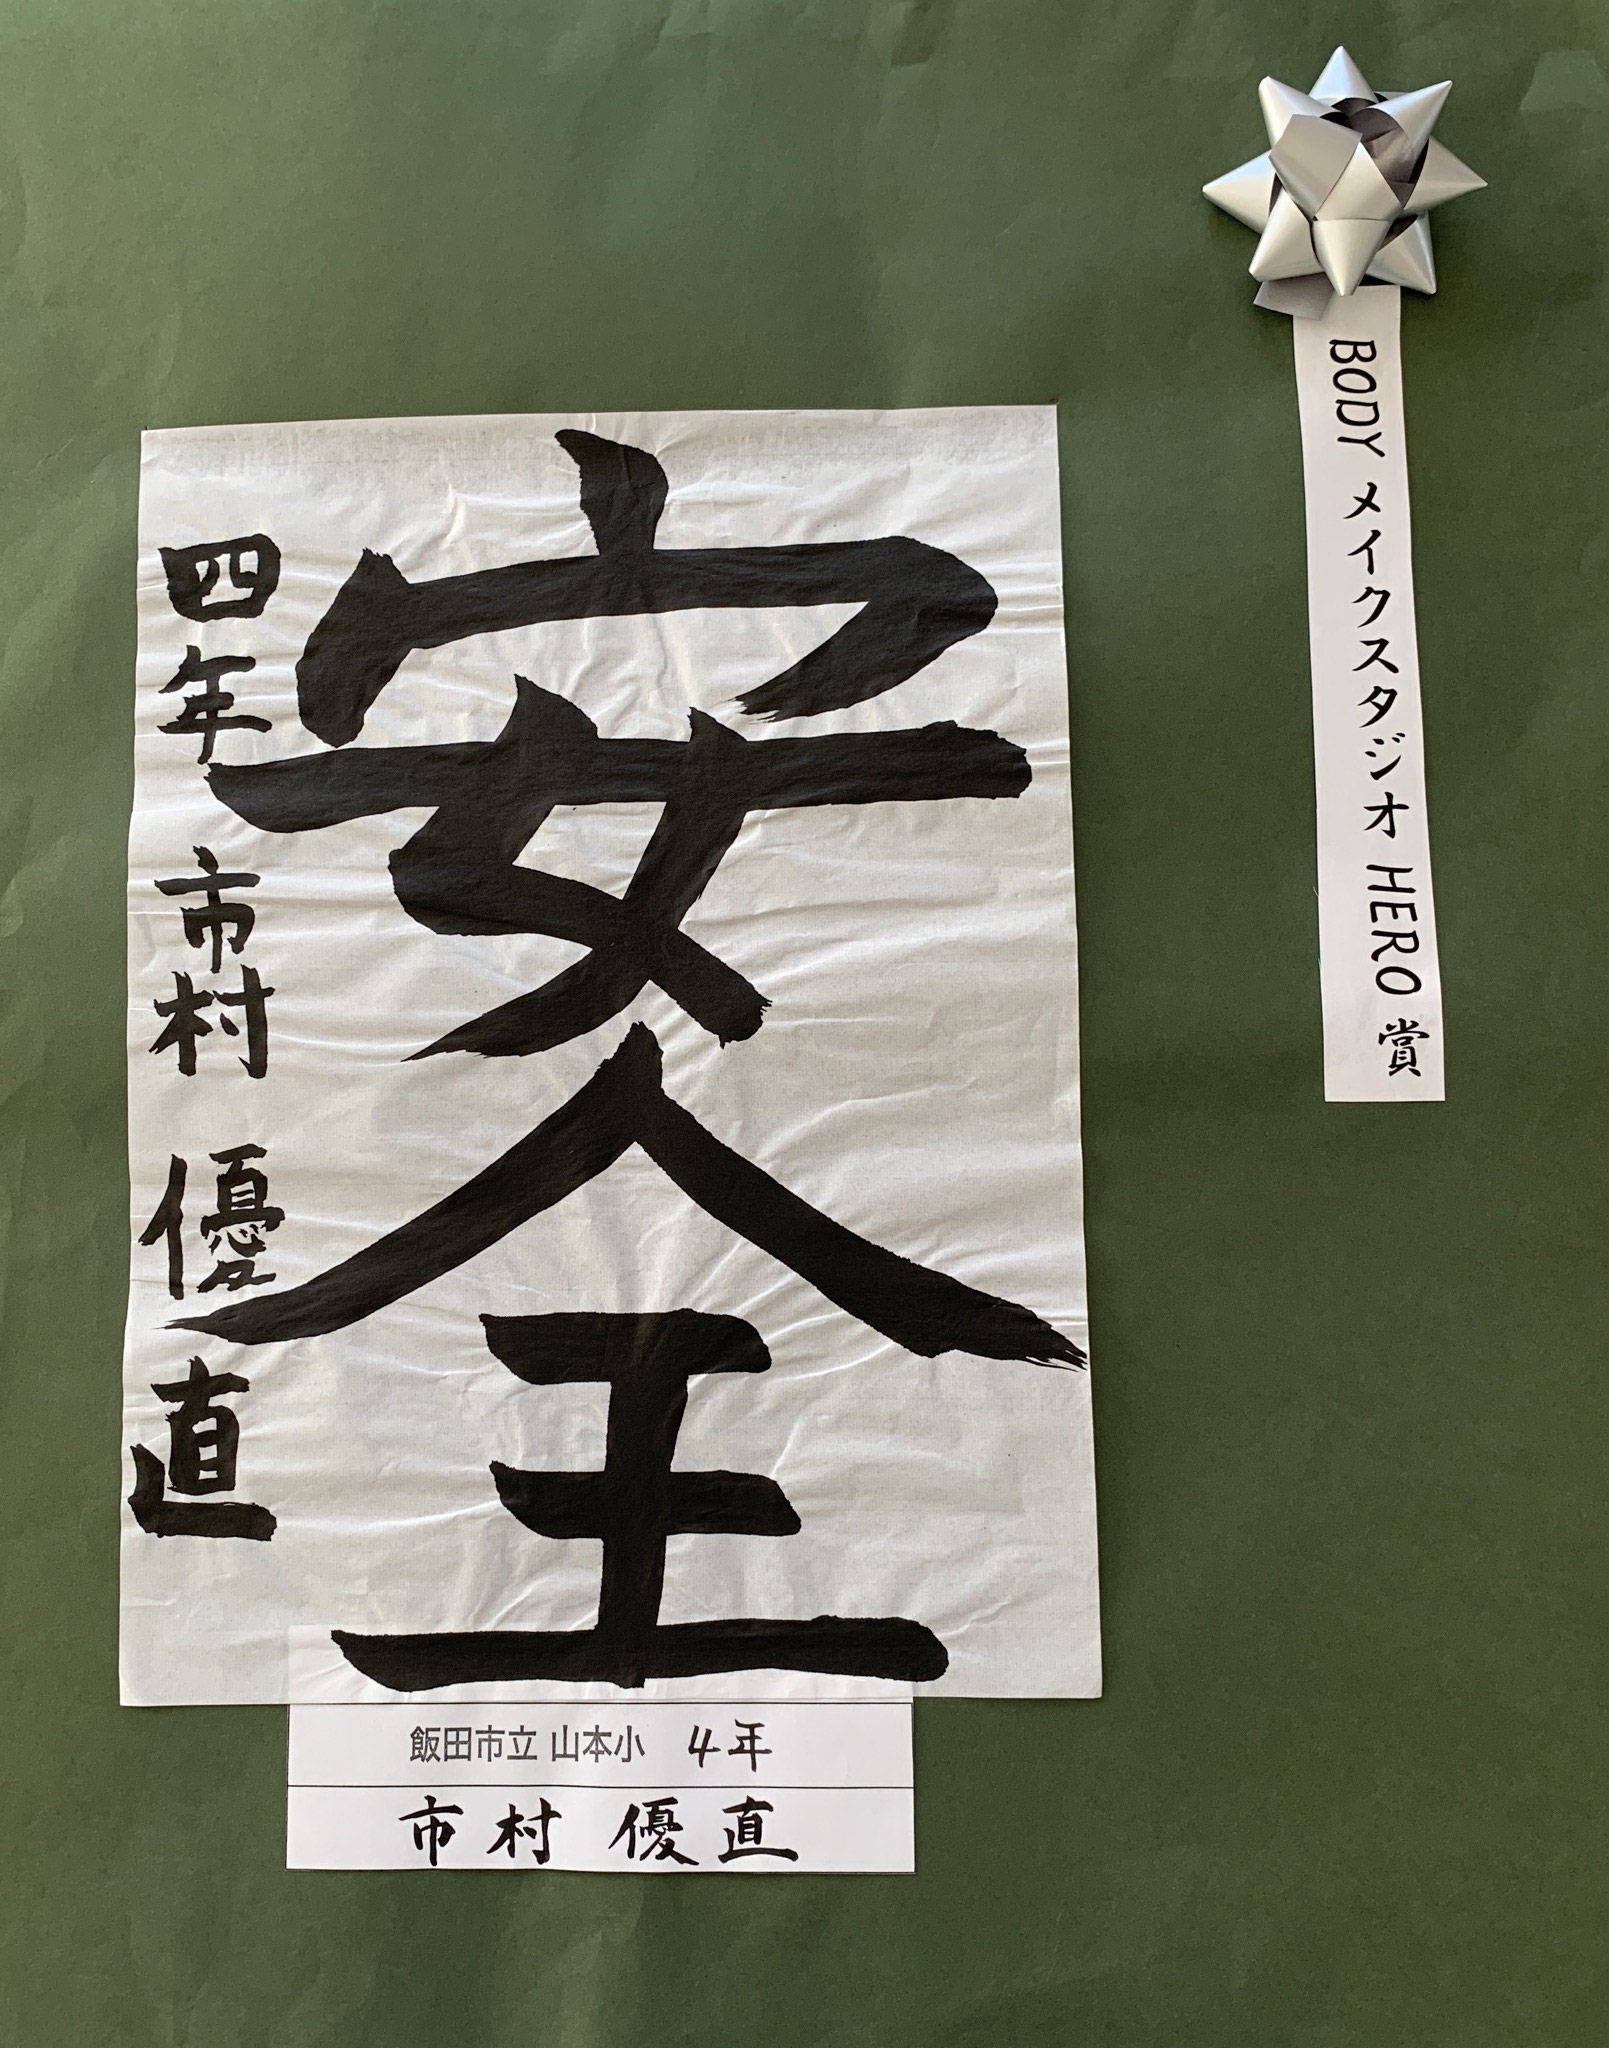 BODY メイクスタジオ HERO 賞
安全
四年 市村 優直
飯田市立 山本小 4年
市村 優直